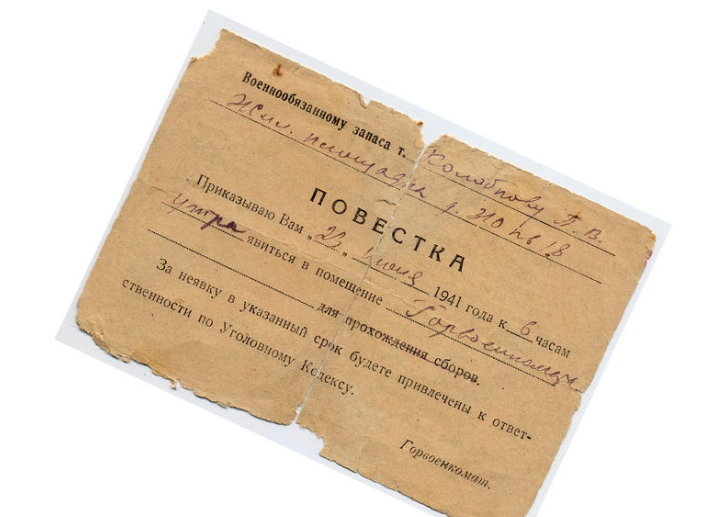 Военнообязанному запаса т. Колобкову П. В.
Жил. площадка д. № 18
ПОВЕСТКА
Приказываю Вам „23„ июня 1941 года к 6 часам
утра явиться в помещение Горвоенкомата
для прохождения сборов.
За неявку в указанный срок будете привлечены к ответ-
ственности по Уголовному Кодексу.
Горвоенкомат.